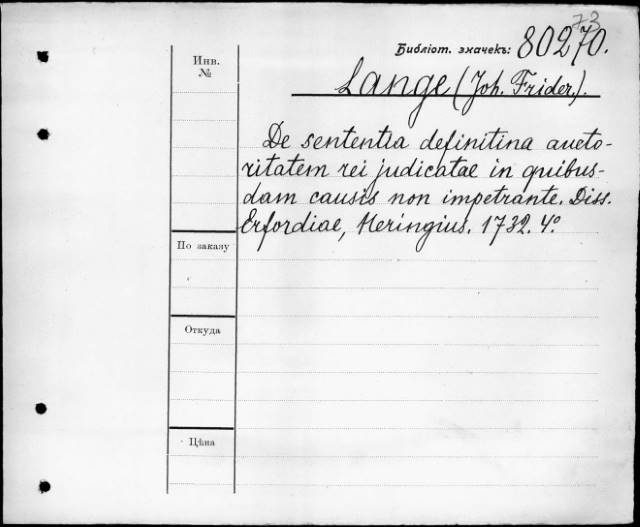 73
Библіот. значекъ: 80270.
Инв.
№
Lange (Joh. Frider.).
De sententia definitiua aucto-
ritatem rei judicatae in quibus-
dam causis non impetrante. Diss.
Erfordiae, Heringius. 1732. 4º
По заказу
Откуда
Цѣна